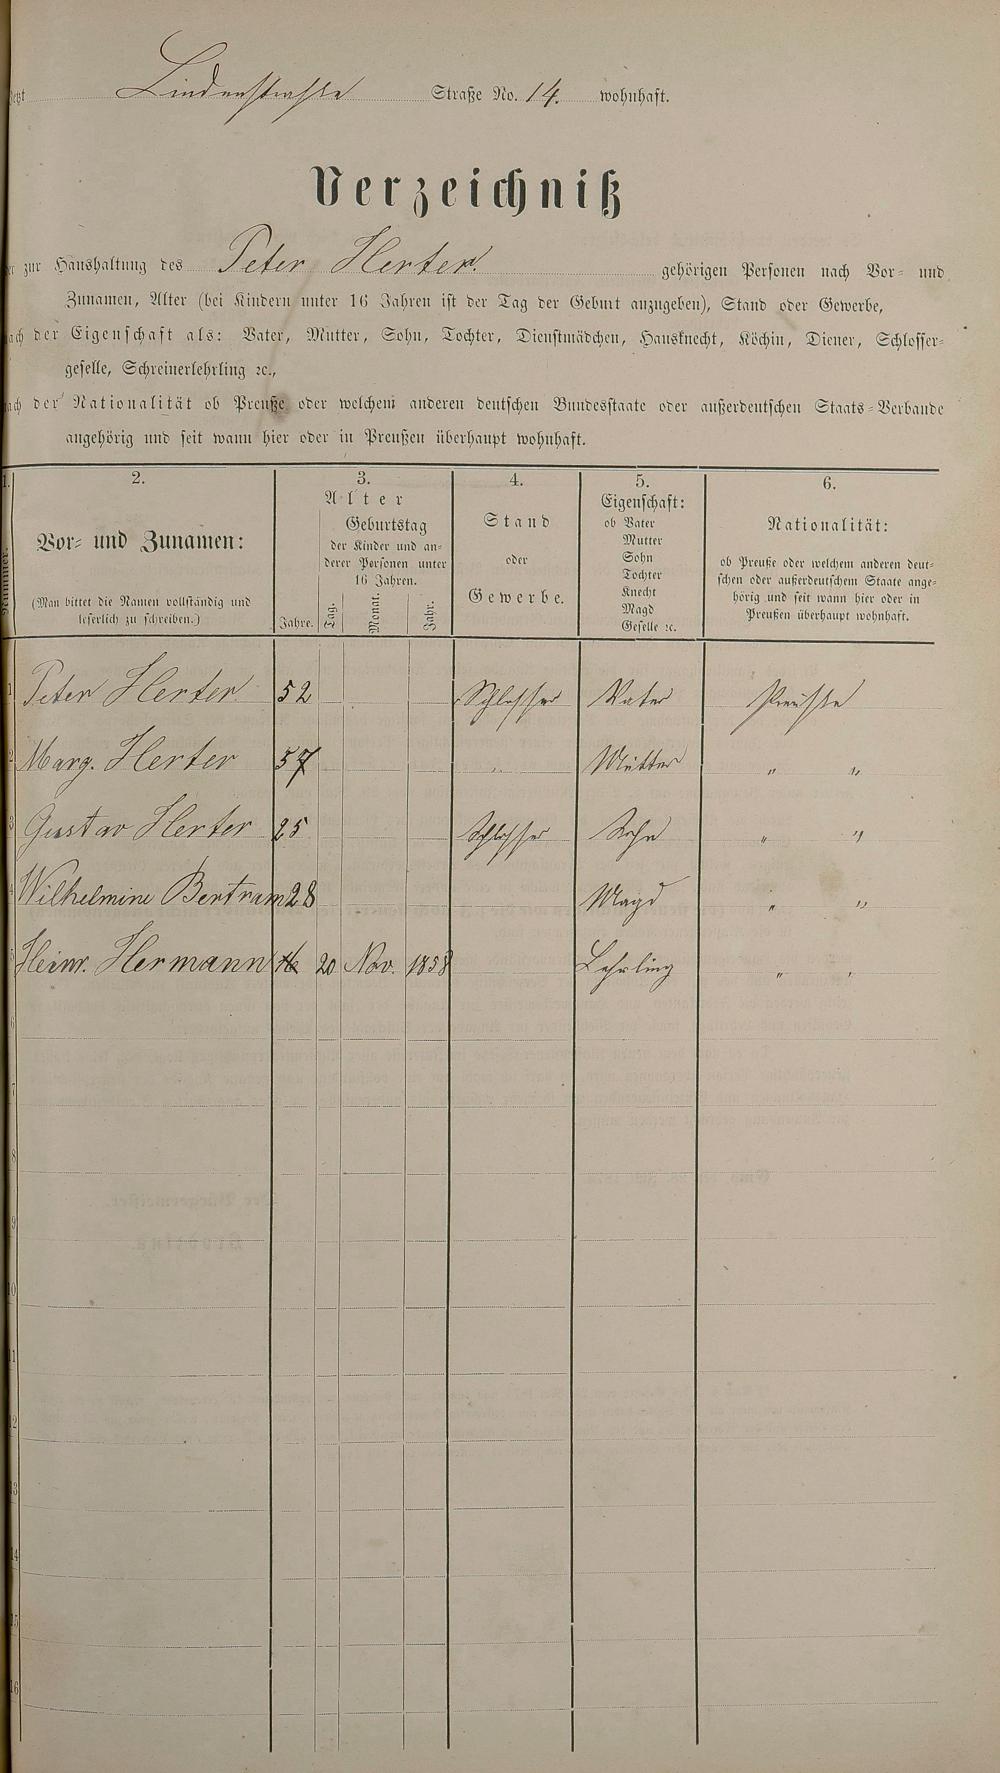 jetzt Lindenstraße Straße No. 14. wohnhaft.
Verzeichniß
der zur Haushaltung des Peter Herter. gehörigen Personen nach Vor- und
Zunamen, Alter (bei Kindern unter 16 Jahren ist der Tag der Geburt anzugeben), Stand oder Gewerbe,
nach der Eigenschaft als: Vater, Mutter, Sohn, Tochter, Dienstmädchen, Hausknecht, Köchin, Diener, Schlosser-
geselle, Schreinerlehrling ꝛc.,
nach der Nationalität ob Preuße oder welchem anderen deutschen Bundesstaate oder außerdeutschen Staats-Verbande
angehörig und seit wann hier oder in Preußen überhaupt wohnhaft.
1. 2. 3. 4. 5. 6.
Nummer.
Vor- und Zunamen:
(Man bittet die Namen vollständig und
leserlich zu schreiben.)
Alter
Jahre.
Geburtstag
der Kinder und an-
derer Personen unter
16 Jahren.
Tag. Monat. Jahr.
Stand
oder
Gewerbe.
Eigenschaft:
ob Vater
Mutter
Sohn
Tochter
Knecht
Magd
Geselle ꝛc.
Nationalität:
ob Preuße oder welchem anderen deut-
schen oder außerdeutschem Staate ange-
hörig und seit wann hier oder in
Preußen überhaupt wohnhaft.
1 Peter Herter 52 Schlosser Vater Preuße
2 Marg. Herter 57 " Mutter " "
3 Gustav Herter 25 Schlosser Sohn " "
4 Wilhelmine Bertram 28 Magd " "
5 Heinr. Hermann 16 20 Nov. 1858 Lehrling " "
6
7
8
9
10
11
12
13
14
15
16